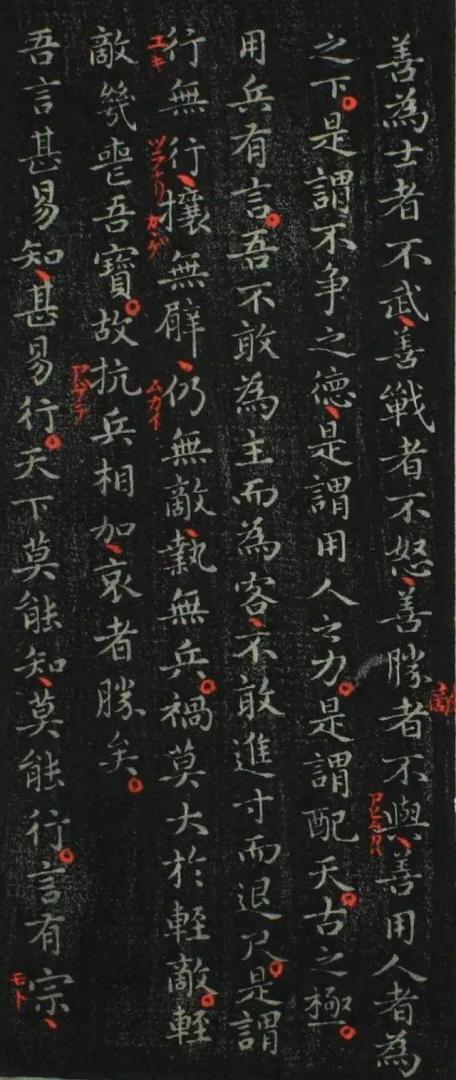 善為士者不武、善戰者不怒、善勝者不與、善用人者為
之下。是謂不爭之德、是謂用人之力。是謂配天。古之極。
用兵有言。吾不敢為主而為客、不敢進寸而退尺。是謂
行無行、攘無臂、仍無敵、執無兵。禍莫大於輕敵。輕
敵幾喪吾寶。故抗兵相加、哀者勝矣。
吾言甚易知、甚易行。天下莫能知、莫能行。言有宗、
敵
ユキ
ムカイ
アゲテ
モト